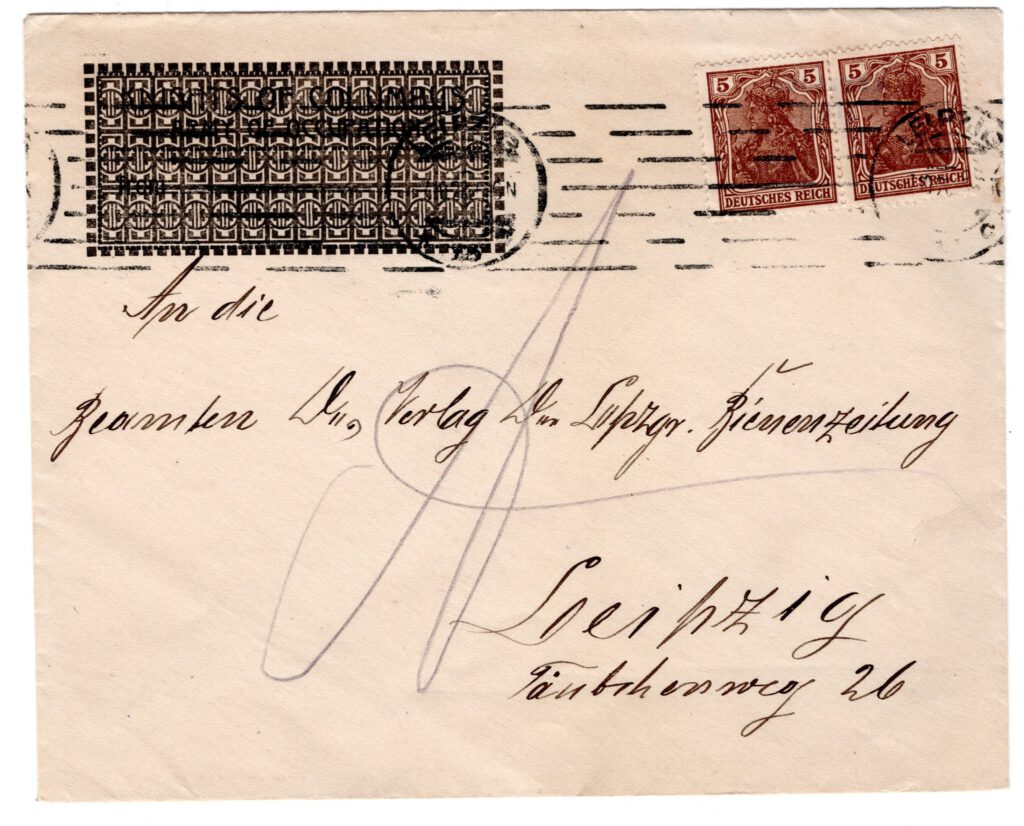 KNIGHTS OF COLUMBUS
ARMY OF OCCUPATION
5 5 5 5
DEUTSCHES REICH DEUTSCHES REICH
LEIPZIG
An die
Beamten Des Verlag Der Lpzgr. Bienenzeitung
Leipzig
Täubchenweg 26